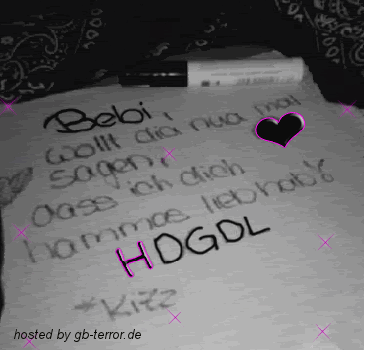 Bebi,
wollt dia nua mall
sagen,
dass ich dich
hammas lieb hab%
HDGDL
*Kizz
hosted by gb-terror.de